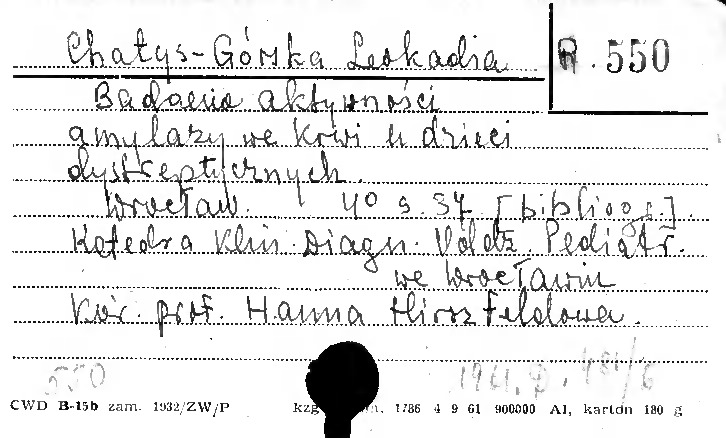 Chatys-Górska Leokadia
R. 550
Badania aktywności
amylazy we krwi u dzieci
dystreptycznych.
Wrocław. 4° s. 37 [bibliogr.].
Katedra Klin. Diagn. Oddz. Pediatr.
we Wrocławiu
Kier. prof. Hanna Hirszfeldowa.
550 1961. D.
CWD B-15b zam. 1932/ZW/P kzg 1786 4 9 61 900000 A1, karton 180 g